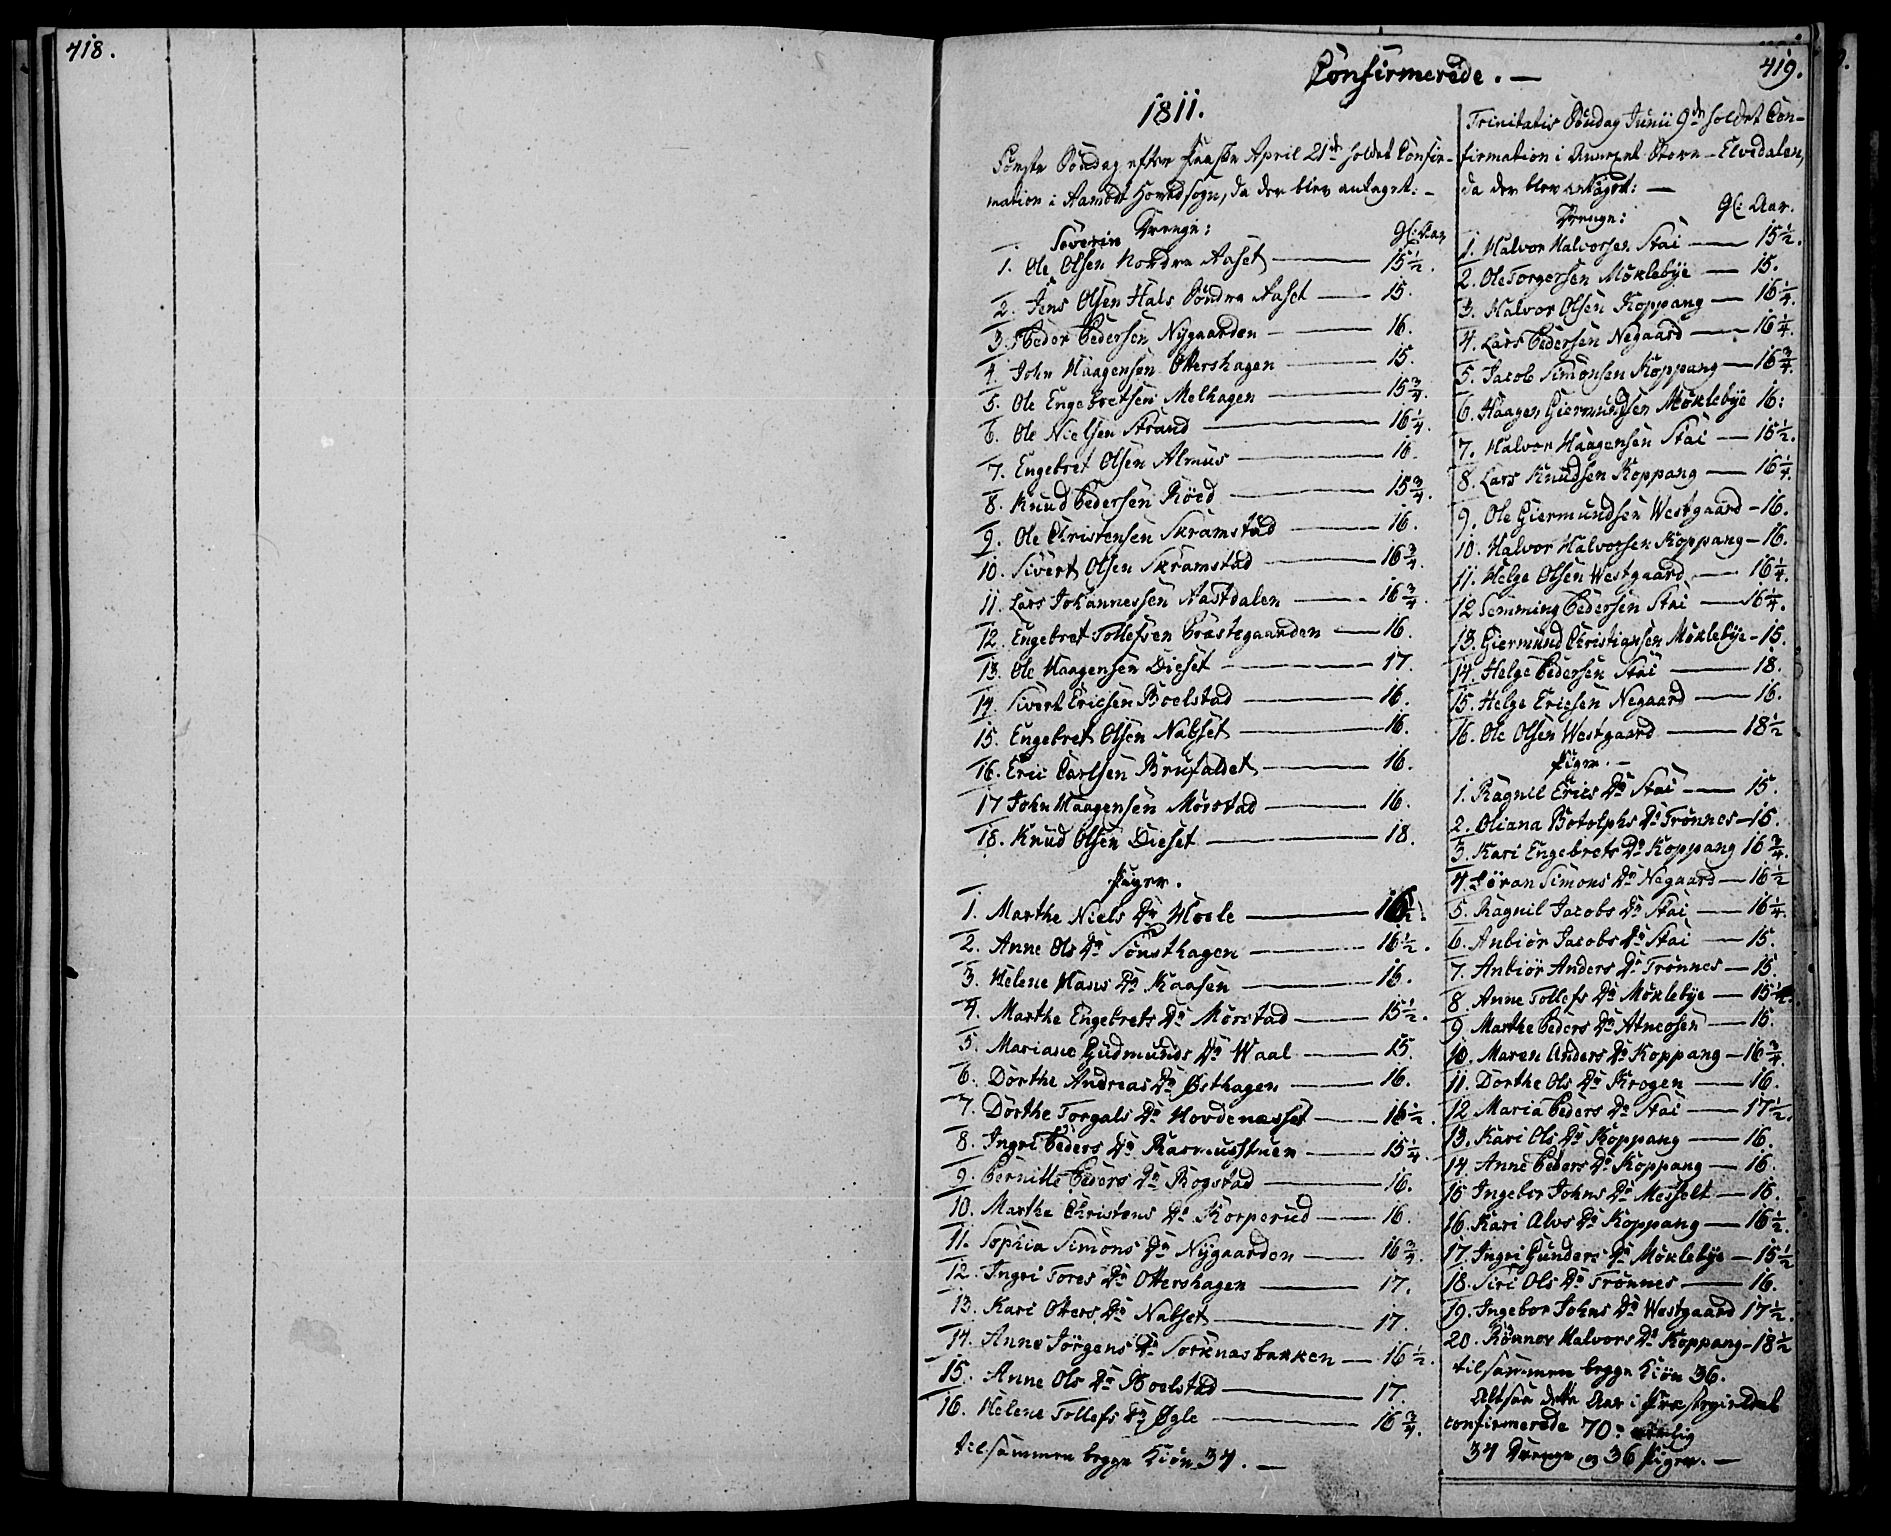 418.
419.
Confirmerede. —
1811.
Første Søndag efter Paaske April 21de holdet Confir-
mation i Aamodt Hovedsogn, da der blev antaget: —
Drenge: Gl: Aar
Severin
1. Ole Olsen Nordre Aaset — 15 1/2.
2. Jens Olsen Hals Søndre Aaset — 15.
3. Peder Pedersen Nygaarden — 16.
4. John Haagensen Ottershagen — 15.
5. Ole Engebretsen Melhagen — 15 3/4.
6. Ole Nielsen Strand — 16 1/4.
7. Engebret Olsen Almus — 16.
8. Knud Pedersen Röed — 15 3/4.
9. Ole Christensen Skramstad — 16.
10. Sivert Olsen Skramstad — 16 3/4.
11. Lars Johannessen Aastdalen — 16 3/4.
12. Engebret Tollefsen Præstegaarden — 16.
13. Ole Haagensen Dieset — 17.
14. Sivert Ericsen Boelstad — 16.
15. Engebret Olsen Nabset — 16.
16. Eric Carlsen Brufaldet — 16.
17. John Haagensen Mørstad — 16.
18. Knud Olsen Dieset — 18.
Piger.
1. Marthe Niels Dr Hoele — 16 1/2.
2. Anne Ols Dr Sønsthagen — 16 1/2.
3. Helene Hans Dr Kaasen — 15.
4. Marthe Engebrets Dr Mørstad — 15 1/2.
5. Mariane Gudmunds Dr Waal — 15.
6. Dorthe Andreas Dr Østhagen — 16.
7. Dorthe Torgals Dr Hovdenæsset — 16 1/2.
8. Ingri Peders Dr Rasmusstuen — 15 1/4.
9. Pernille Peders Dr Bogstad — 16.
10. Marthe Christens Dr Korperud — 16.
11. Sophia Simons Dr Nygaarden — 16 3/4.
12. Ingri Tores Dr Ottershagen — 17.
13. Kari Otters Dr Nabset — 17.
14. Anne Jörgens Dr Sorknæsbakken — 16 1/2.
15. Anne Ols Dr Boelstad — 17.
16. Helene Tollefs Dr Øgle — 16 3/4.
tilsammen begge Kiön 34. —
Trinitatis Søndag Junii 9de holdet Con-
firmation i Annexet Store-Elvedalen,
da der blev antaget: —
Drenge: Gl: Aar.
1. Halvor Halvorsen Stai — 15 1/2.
2. Ole Torgersen Møklebye — 15.
3. Halvor Olsen Koppang — 16 1/4.
4. Lars Pedersen Negaard — 16 1/4.
5. Jacob Simonsen Koppang — 16 3/4.
6. Haagen Giermundsen Møklebye 16:
7. Halvor Haagensen Stai — 15 1/2.
8. Lars Knudsen Koppang — 16 1/4.
9. Ole Giermundsen Westgaard — 16.
10. Halvor Halvorsen Koppang — 16.
11. Helge Olsen Westgaard — 16 1/4.
12. Semming Pedersen Stai — 16 1/4.
13. Giermund Christiansen Møklebye — 15.
14. Helge Pedersen Stai — 18.
15. Helge Ericsen Negaard — 16.
16. Ole Olsen Westgaard — 18 1/2
Piger. —
1. Ragnil Erics Dr Stai — 15.
2. Oliana Botolphs Dr Trønnes — 15.
3. Kari Engebrets Dr Koppang 16 3/4.
4. Göran Simons Dr Negaard — 16 1/2
5. Ragnil Jacobs Dr Stai — 16 1/4.
6. Anbiör Jacobs Dr Stai — 15.
7. Anbiör Anders Dr Trønnes — 15.
8. Anne Tollefs Dr Møklebye — 15 1/2.
9. Marthe Peders Dr Atneosen — 15.
10. Maren Anders Dr Koppang — 16 3/4.
11. Dorthe Ols Dr Krogen — 16.
12. Maria Peders Dr Stai — 17 1/2.
13. Kari Ols Dr Koppang — 16.
14. Anne Peders Dr Koppang — 16.
15. Ingebor Johns Dr Messelt — 16.
16. Kari Alvs Dr Koppang — 16 1/2.
17. Ingri Gunders Dr Møklebye — 15 1/2
18. Siri Ols Dr Trønnes — 16.
19. Ingebor Johns Dr Westgaard 17 1/2.
20. Rønnov Halvors Dr Koppang — 18 1/2
tilsammen begge Kiön 36.
Altsaa dette Aar i Præstegieldet
confirmerede 70: nemlig
34 Drenge og 36 Piger. —